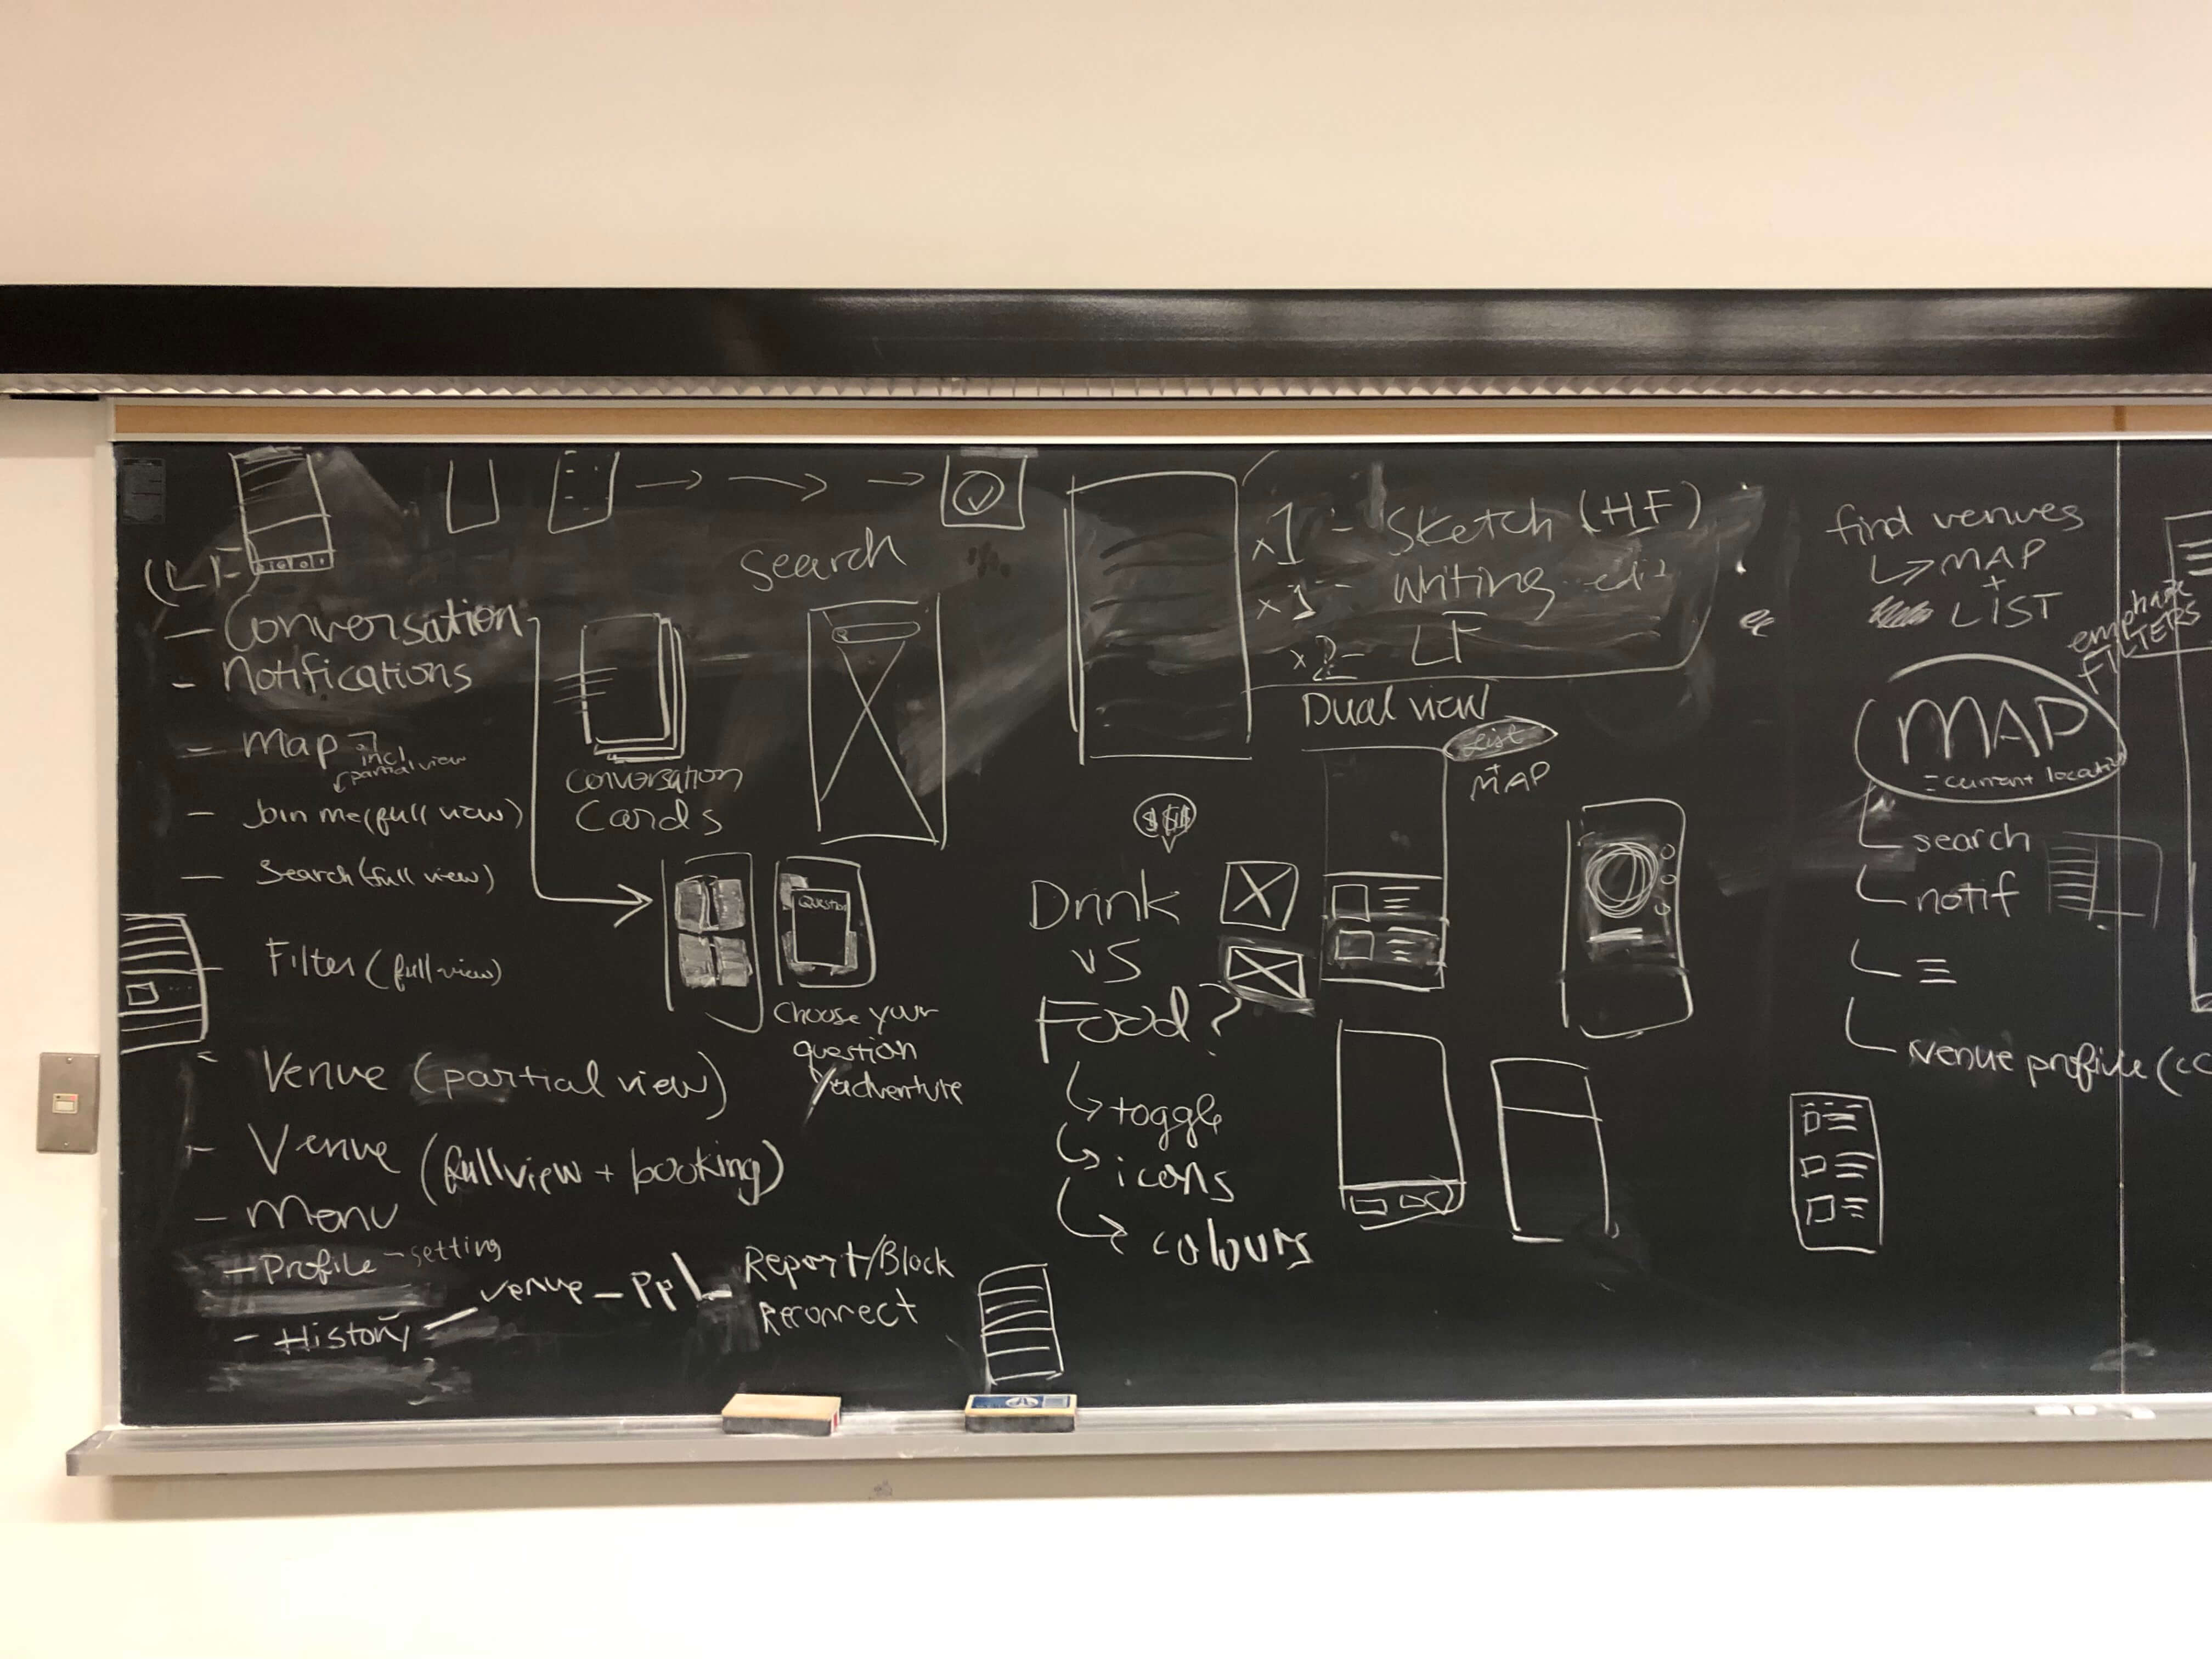 (LF)
- Conversation
- Notifications
- Map
incl
partial view
- Join me (full view)
- Search (full view)
- Filter (full view)
- Venue (partial view)
- Venue (fullview + booking)
- Menu
- Profile - setting
- History - venue - ppl - Report/Block
Reconnect
Conversation
Cards
Search
Question
Choose your
question
adventure
x1 - Sketch (HF)
x1 - Writing
x2 - LF
Dual view
List
+
MAP
$$$
Drink
vs
Food?
toggle
icons
colours
find venues
MAP
+
LIST
FILTERS
MAP
= current
search
notif
venue profile